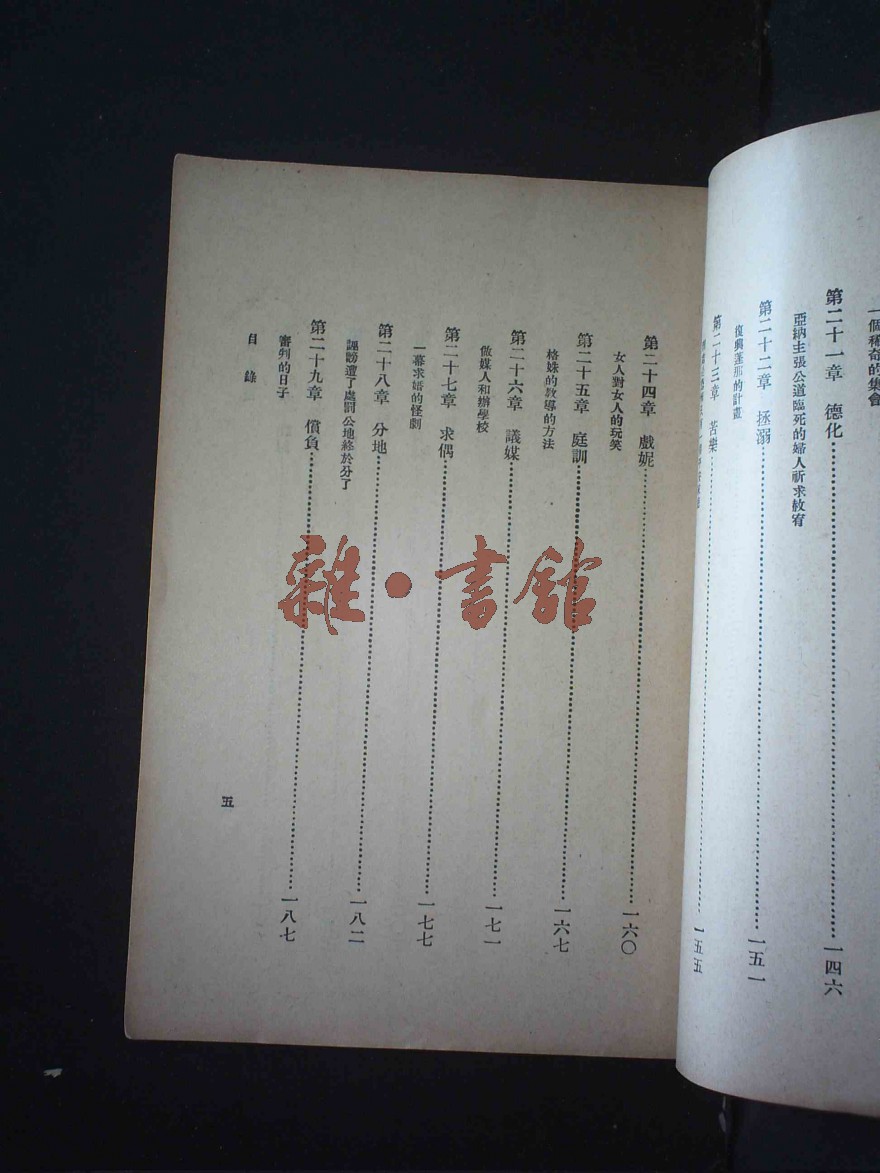 一個稀奇的集會
第二十一章 德化……一四六
亞納主張公道臨死的婦人祈求赦宥
第二十二章 拯溺……一五一
復興蓮那的計畫
第二十三章 苦樂……一五五
第二十四章 戲妮……一六〇
女人對女人的玩笑
第二十五章 庭訓……一六七
格姝的敎導的方法
第二十六章 議媒……一七一
做媒人和辦學校
第二十七章 求偶……一七七
一幕求婚的怪劇
第二十八章 分地……一八二
誹謗遭了處罰公地終於分了
第二十九章 償負……一八七
審判的日子
目錄
五
雜·書館